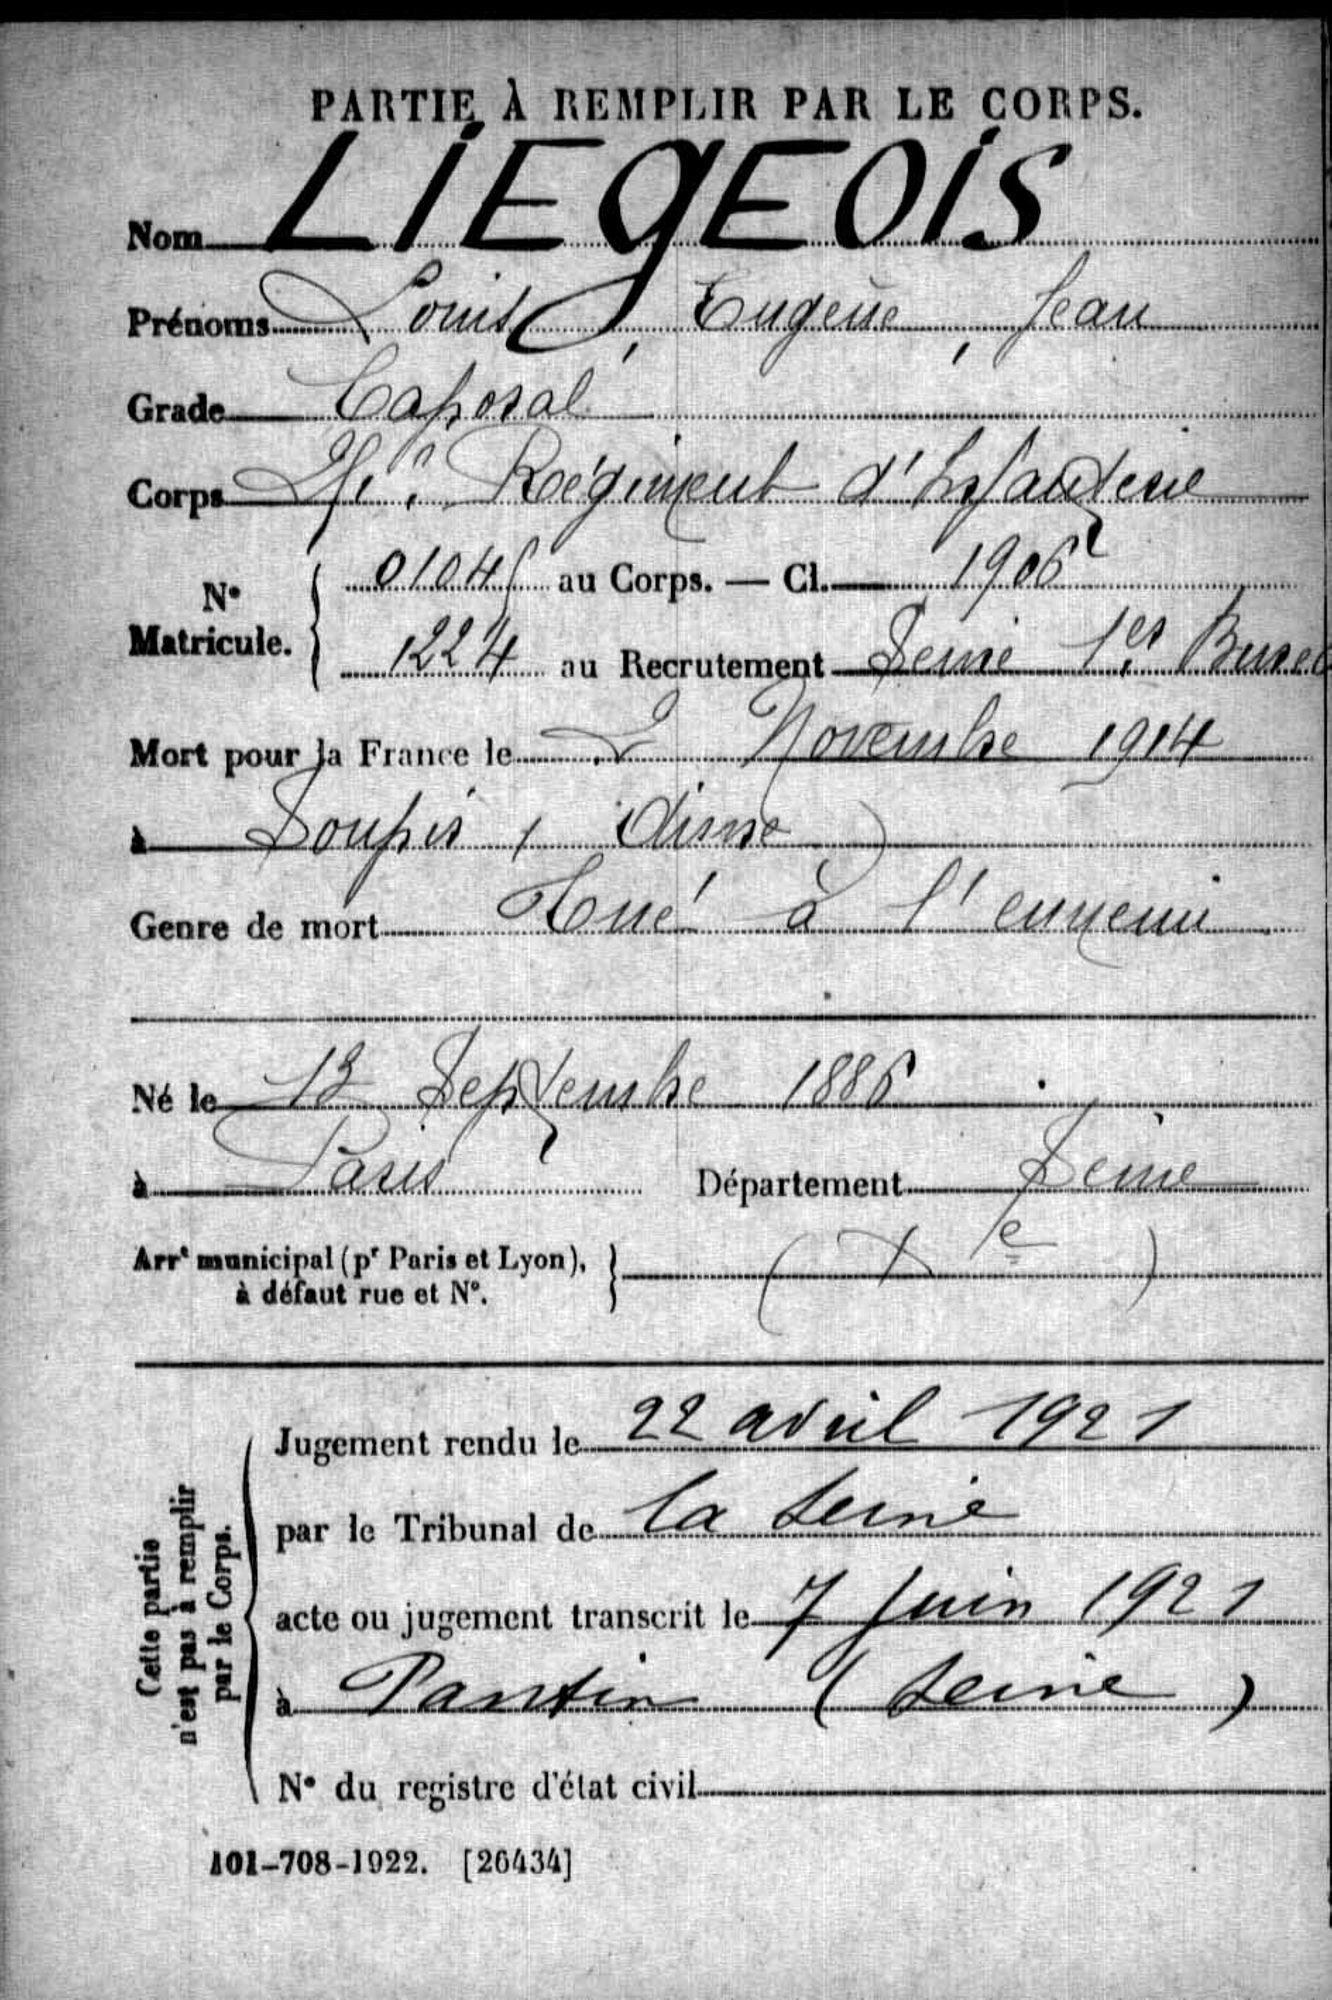 PARTIE À REMPLIR PAR LE CORPS.
Nom LIEGEOIS
Prénoms Louis, Eugène, Jean
Grade Caporal
Corps Régiment d'Infanterie
N° Matricule. 0104 au Corps. — Cl. 1906
1224 au Recrutement Seine 1er Bureau
Mort pour la France le 2 Novembre 1914
à Soupir, Aisne
Genre de mort Tué à l'ennemi
Né le 13 Septembre 1886
à Paris Département Seine
Arrt municipal (pr Paris et Lyon), à défaut rue et N°. (Xe)
Cette partie n'est pas à remplir par le Corps.
Jugement rendu le 22 avril 1921
par le Tribunal de la Seine
acte ou jugement transcrit le 7 juin 1921
à Pantin (Seine)
N° du registre d'état civil
101-708-1922. [26434]